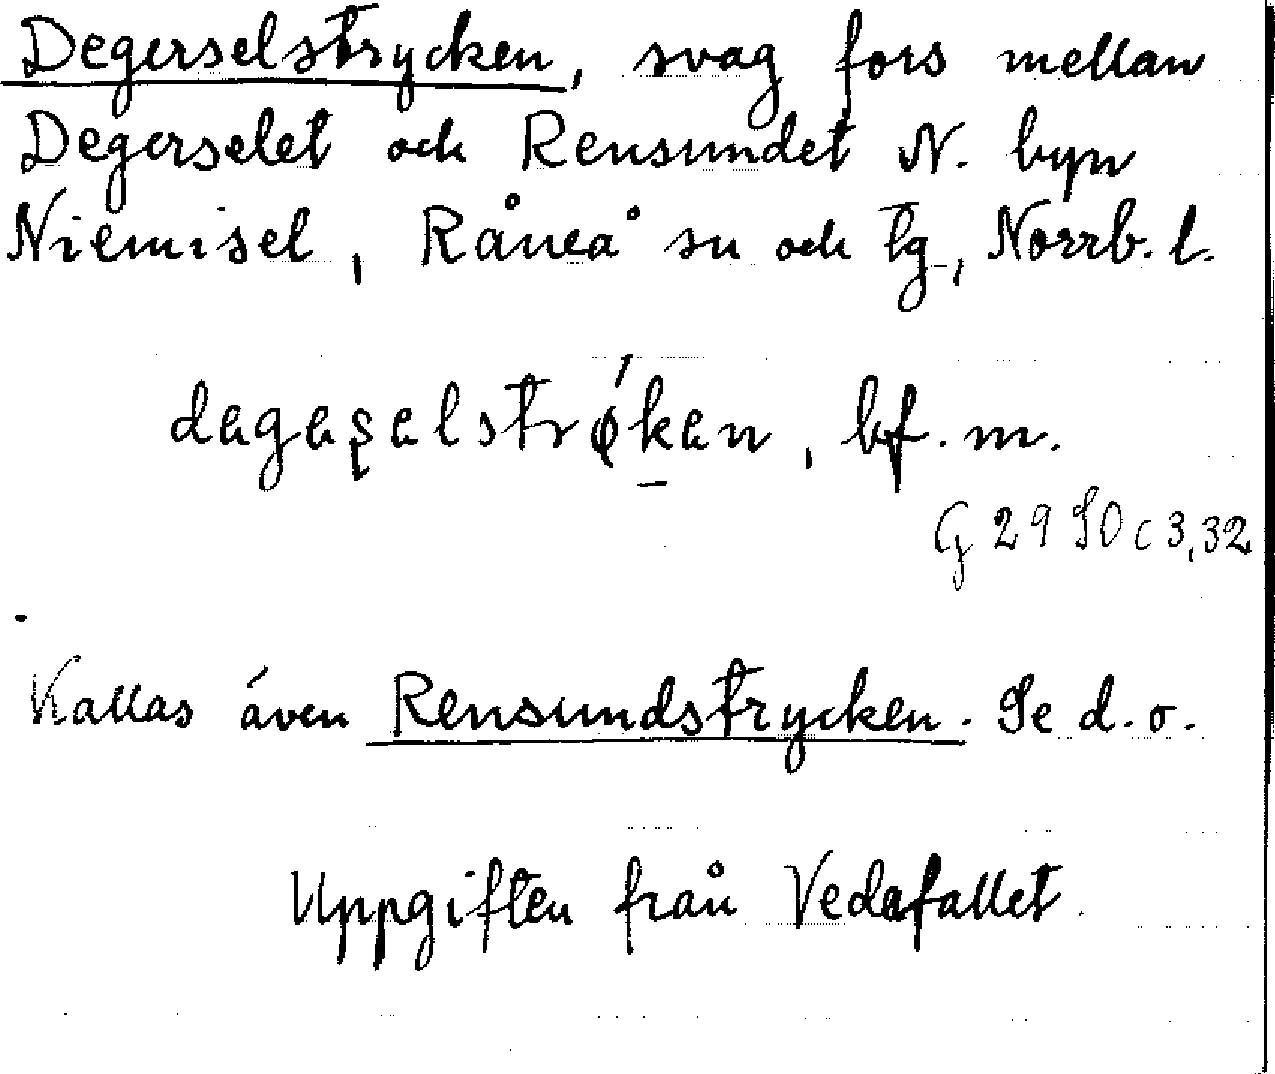 Degerselstrycken, svag fors mellan
Degerselet och Rensundet N. byn
Niemisel, Råneå sn och tg, Norrb. l.
bf. m.
G 29 SO c 3,32
Kallas även Rensundstrycken. Se d. o.
Uppgiften från Vedafallet.